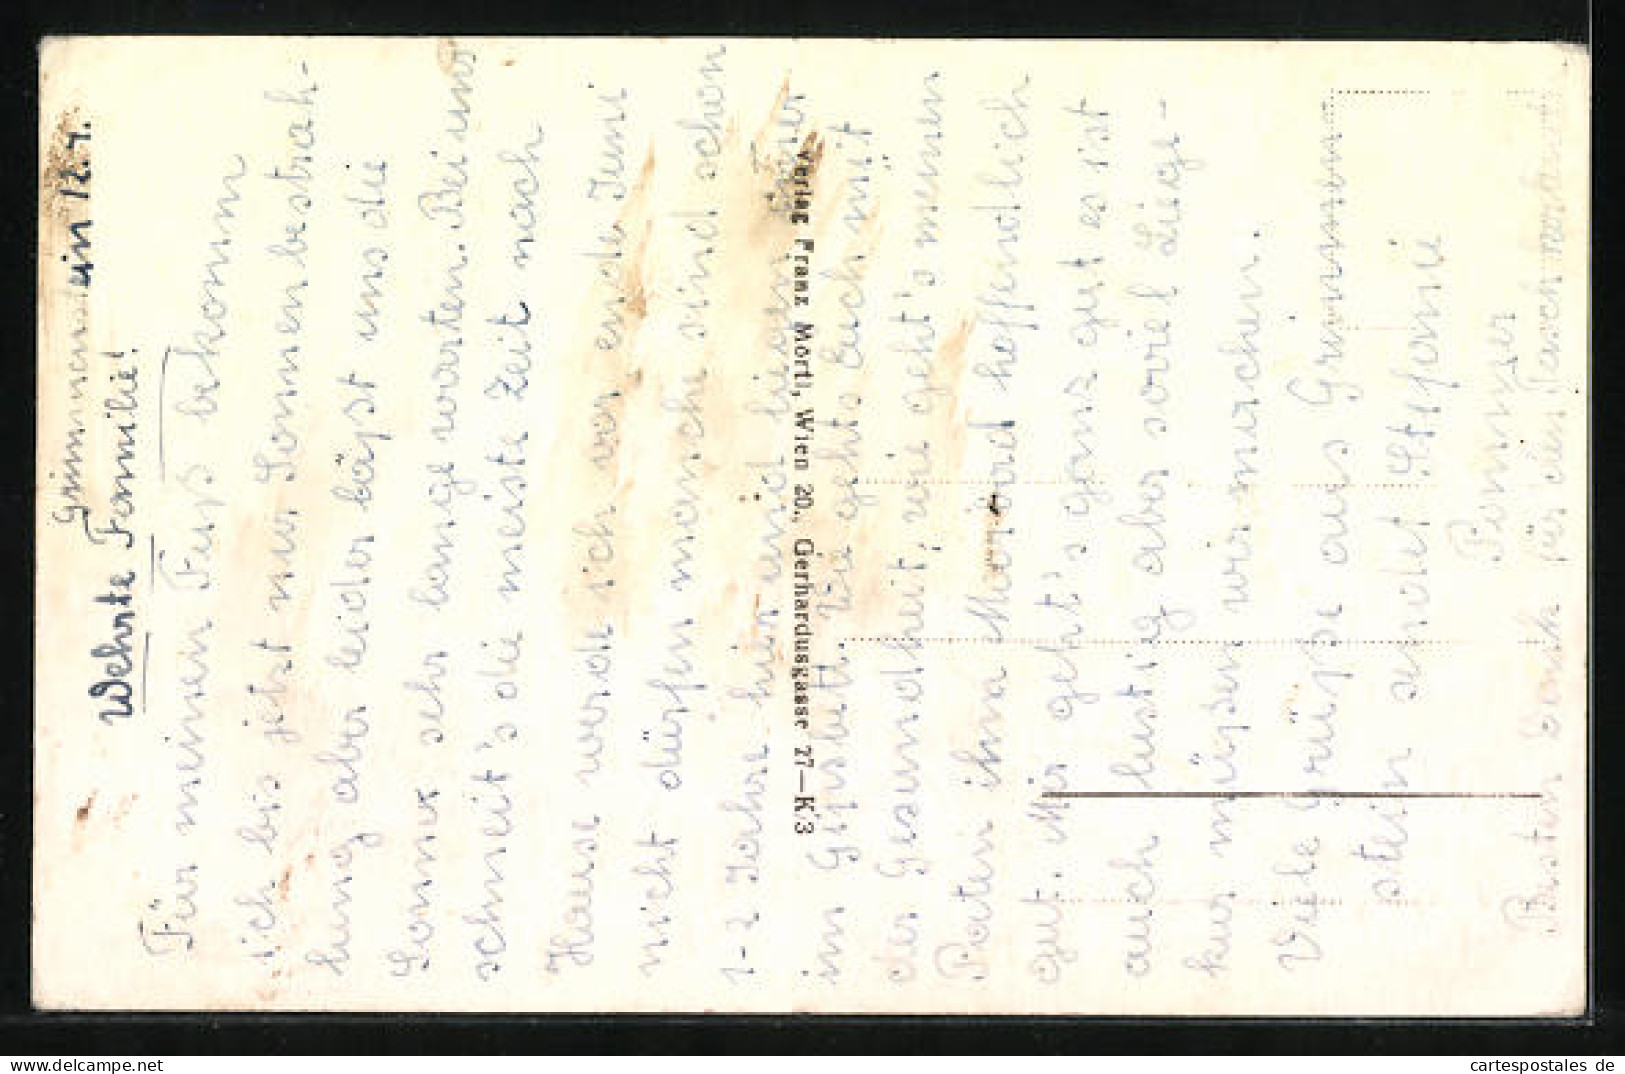 Grimmenstein 12.4.
Wehrte Familie!
Für meinen Fuß bekomm
ich bis jetzt nur Sonnenbestrah-
lung aber leider läßt uns die
Sonne sehr lange warten. Bei uns
schneit's die meiste Zeit nach
Hause werde ich vor ende Juni
nicht dürfen manche sind schon
1-2 Jahre hier und liegen immer
im Gipsbett. Wie gehts Euch mit
der Gesundheit, wie geht's meinen
Paten ihna Moorbad hoffendlich
gut. Mir geht's ganz gut es ist
auch lustig aber soviel Liege-
kur müßen wir machen.
Viele Grüße aus Grimmen-
stein sendet Steffanie
Besten Dank für die
Verlag Franz Mörtl, Wien 20., Gerhardusgasse 27—K3
www.oldthing.net
cartespostales de